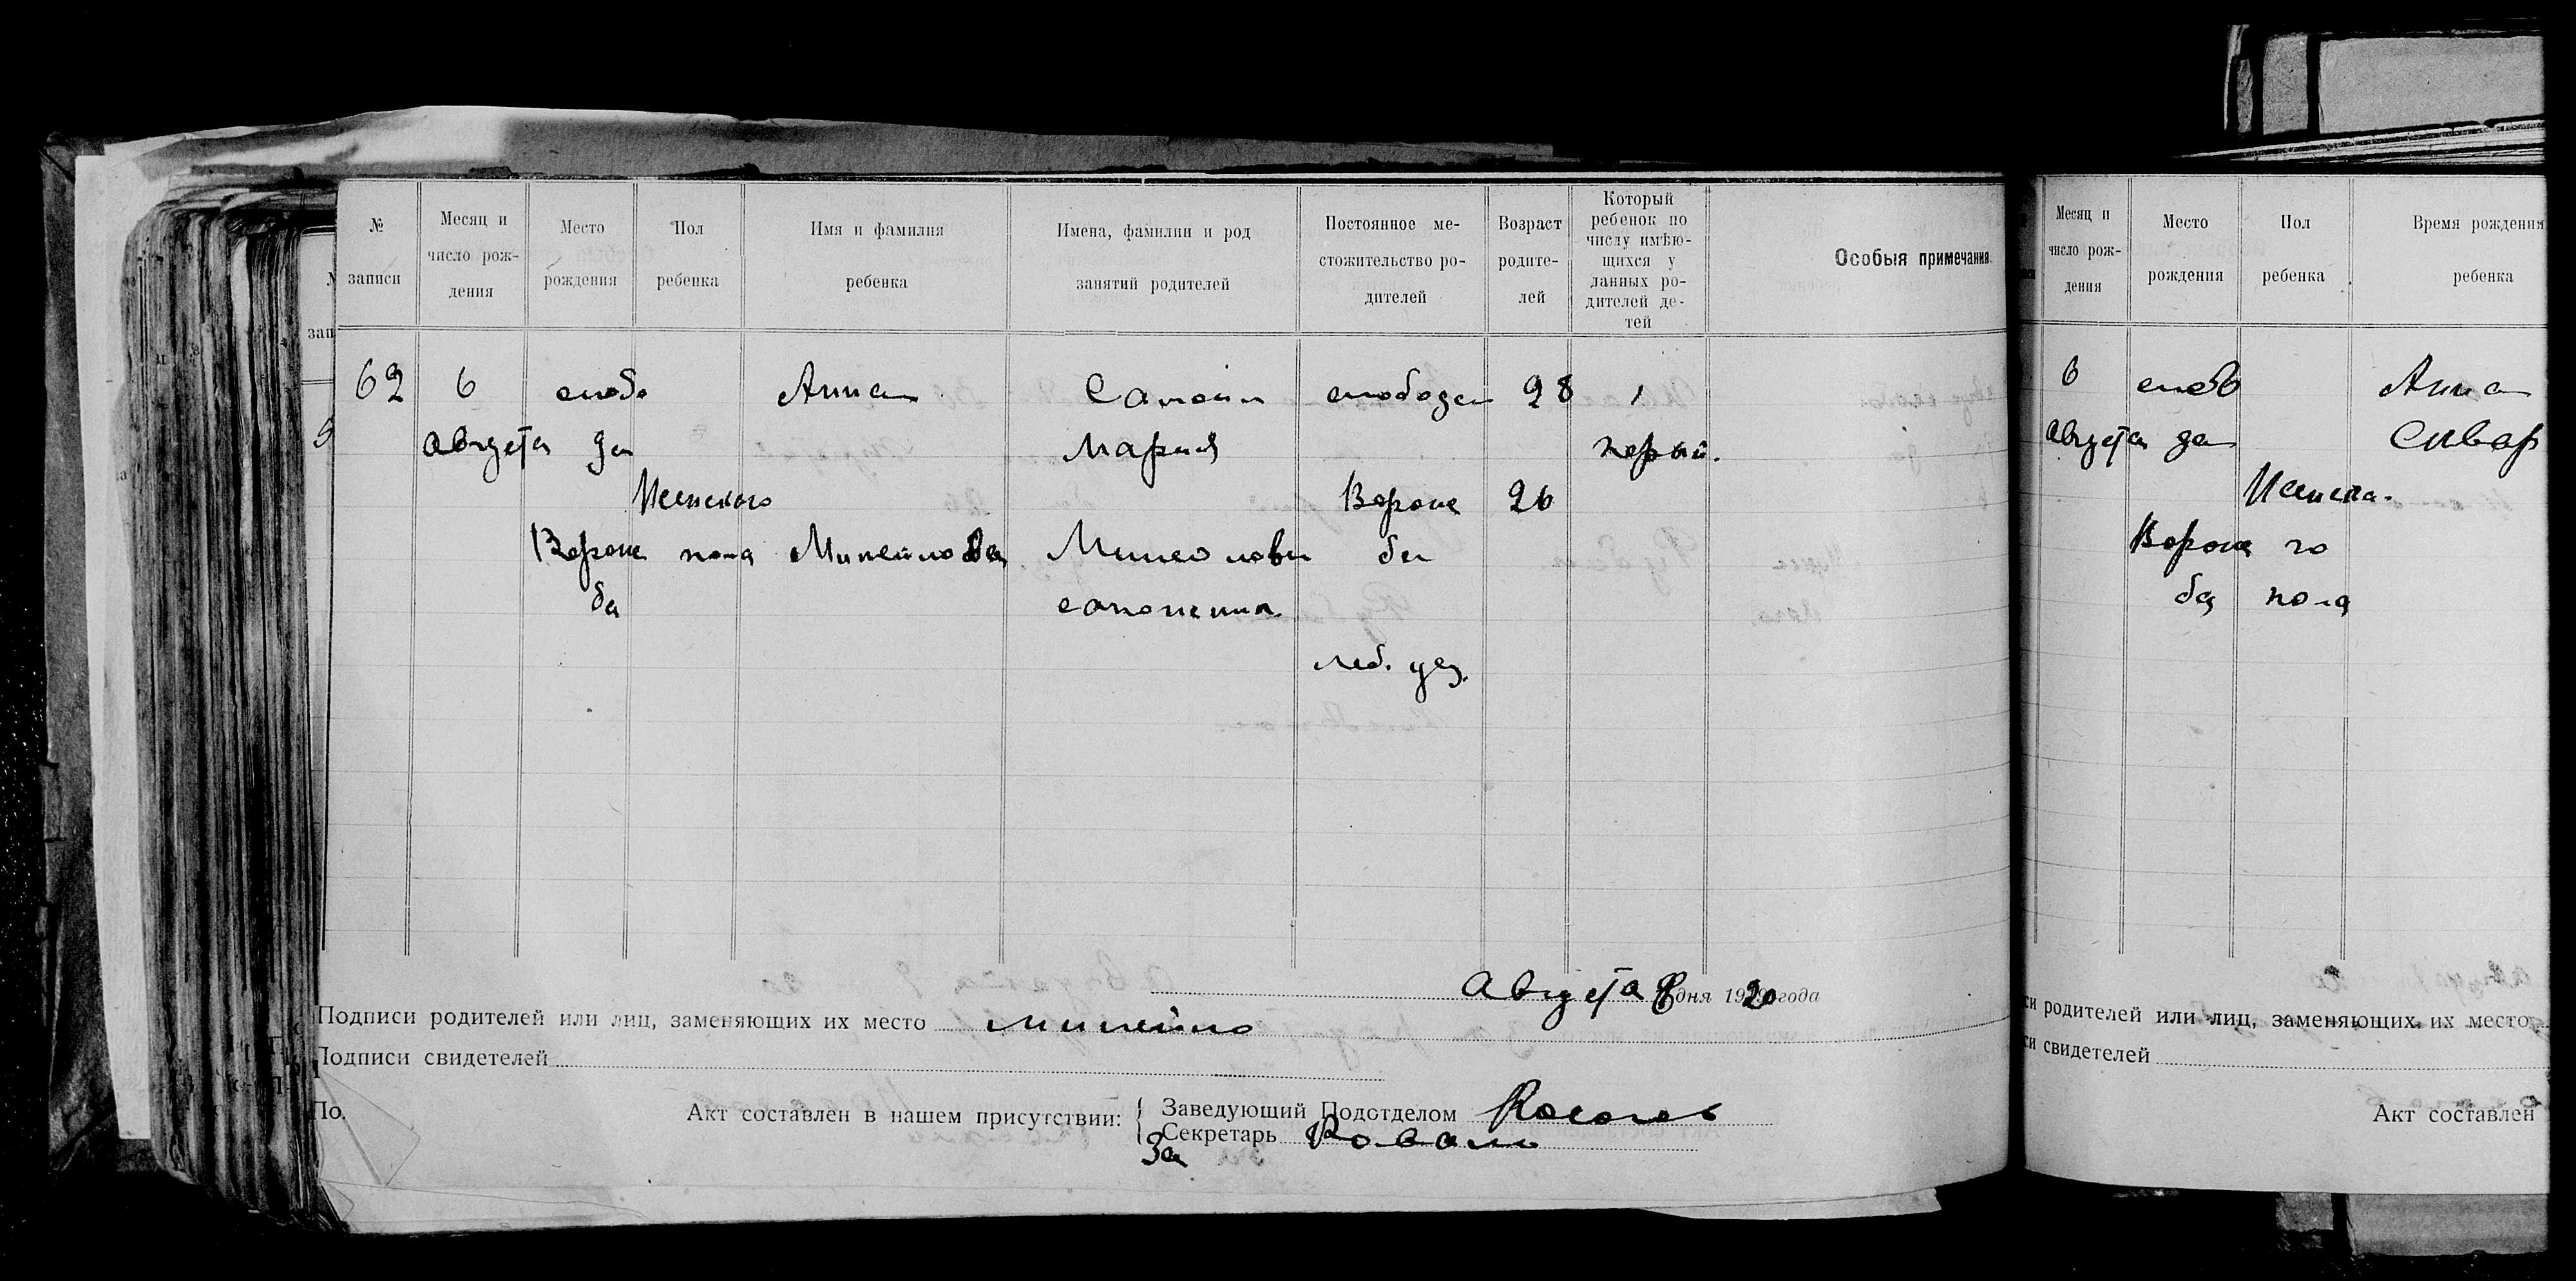 № записи
Месяц и число рождения
Место рождения
Пол ребенка
Имя и фамилия ребенка
Имена, фамилии и род занятий родителей
Постоянное местожительство родителей
Возраст родителей
Который ребенок по числу имѣющихся у данных родителей детей
Особыя примечания.
62 6 слобо Анна Самоил слобода 28 1
Августа да Мария перый.
Женского Вороже 26
Вороже пола
ба ба
леб. уез.
Августа 8 дня 1920 года
Подписи родителей или лиц, заменяющих их место
Подписи свидетелей
По.
Акт составлен в нашем присутствии:
Заведующий Подотделом
Секретарь Коваль
За
Месяц и число рождения
Место рождения
Пол ребенка
Время рождения ребенка
6 слобо Анна
Августа да
Женска-
Вороже го
ба пола
си родителей или лиц, заменяющих их место
си свидетелей
Акт составлен